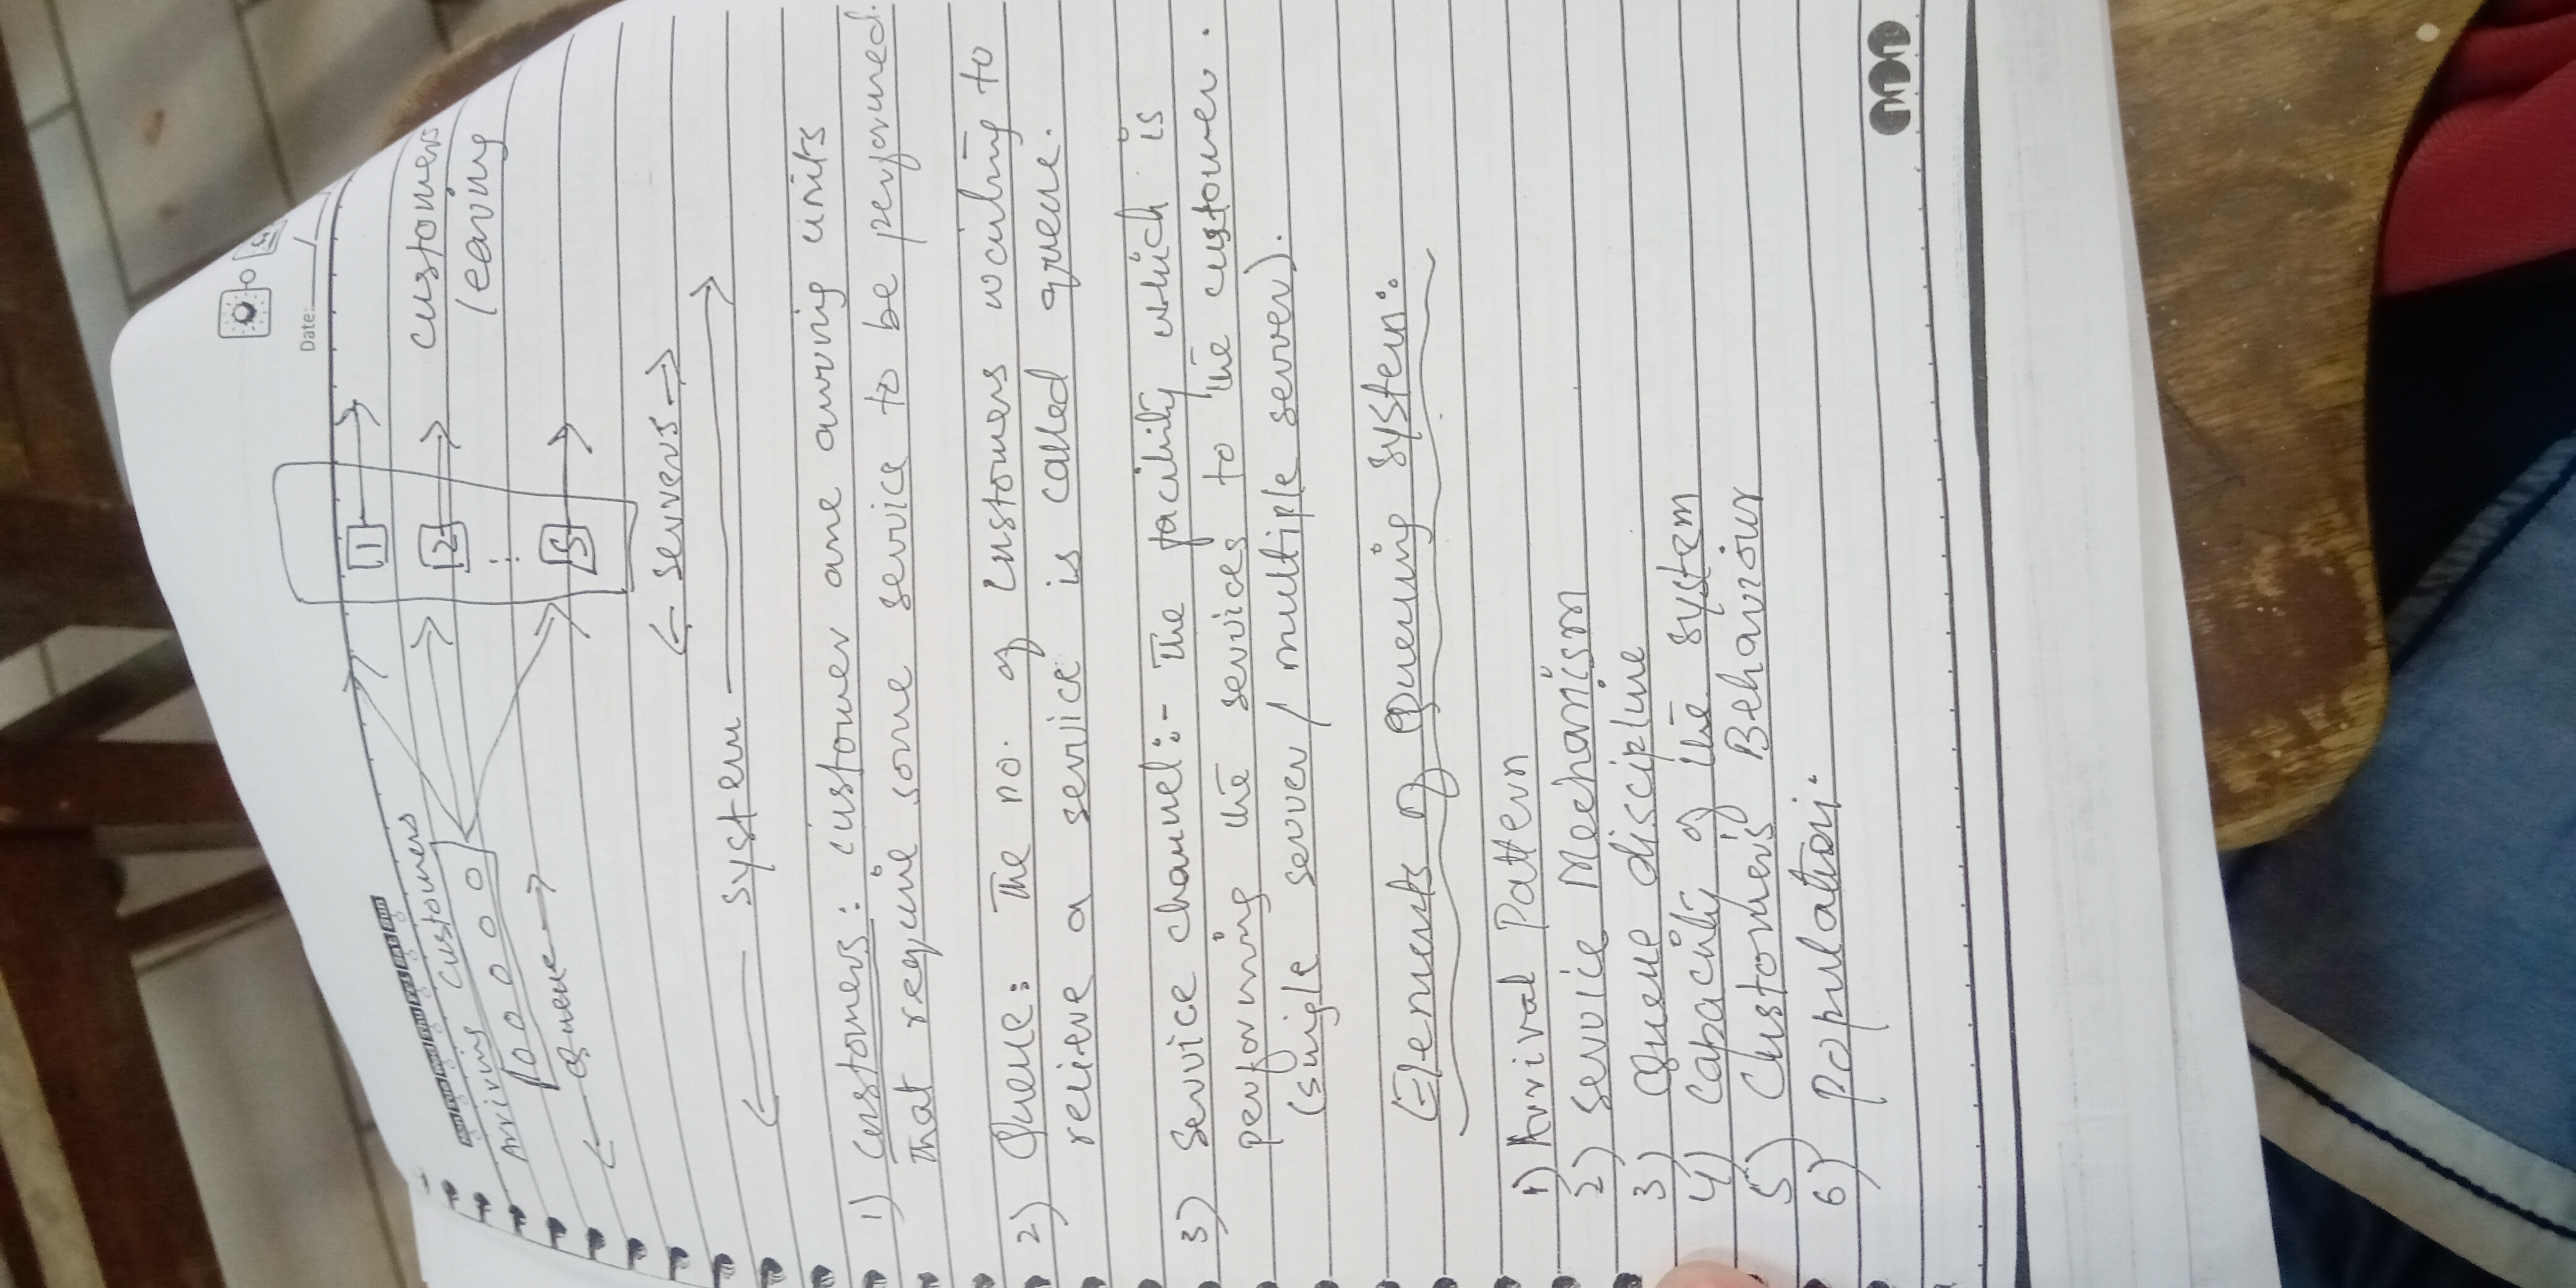 Date:
Arriving customers
customers
0 0 0 0 0
1
2
S
customers
leaving
← Queue →
← servers →
← system →
1) customers: customer are arriving units
that require some service to be performed.
2) Queue: The no. of customers waiting to
recieve a service is called queue.
3) Service channel:- The facility which is
performing the services to the customer.
(single server / multiple server).
Elements of Queuing system:
1) Arrival Pattern
2) Service Mechanism
3) Queue discipline
4) Capacity of the system
5) Customer's Behaviour
6) Population.